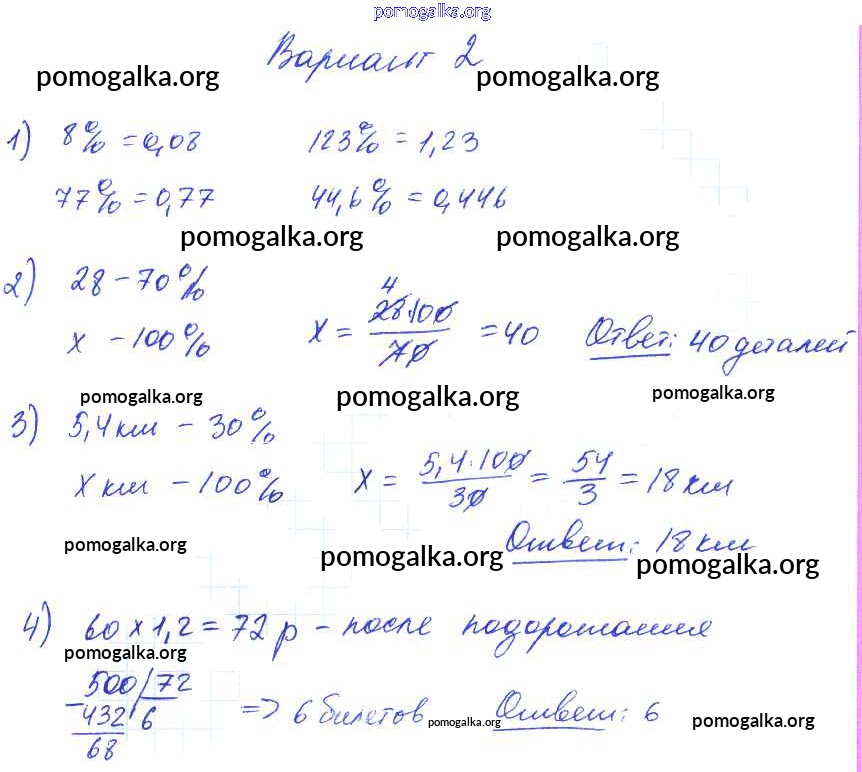 pomogalka.org
Вариант 2
pomogalka.org pomogalka.org
1) 8% = 0,08 123% = 1,23
77% = 0,77 44,6% = 0,446
pomogalka.org pomogalka.org
2) 28 - 70%
x - 100% x = 28·100/70 = 40 Ответ: 40 деталей
4
pomogalka.org pomogalka.org pomogalka.org
3) 5,4 км - 30%
x км - 100% x = 5,4·100/30 = 54/3 = 18 км
pomogalka.org pomogalka.org Ответ: 18 км
pomogalka.org
4) 60 x 1,2 = 72 р - после подорожания
pomogalka.org
500 72
- 432 6 => 6 билетов pomogalka.org Ответ: 6 pomogalka.org
68